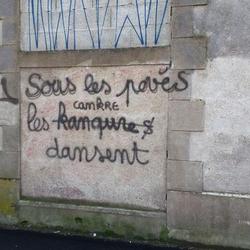 Sous les pavés
camKRE
les kangures
dansent